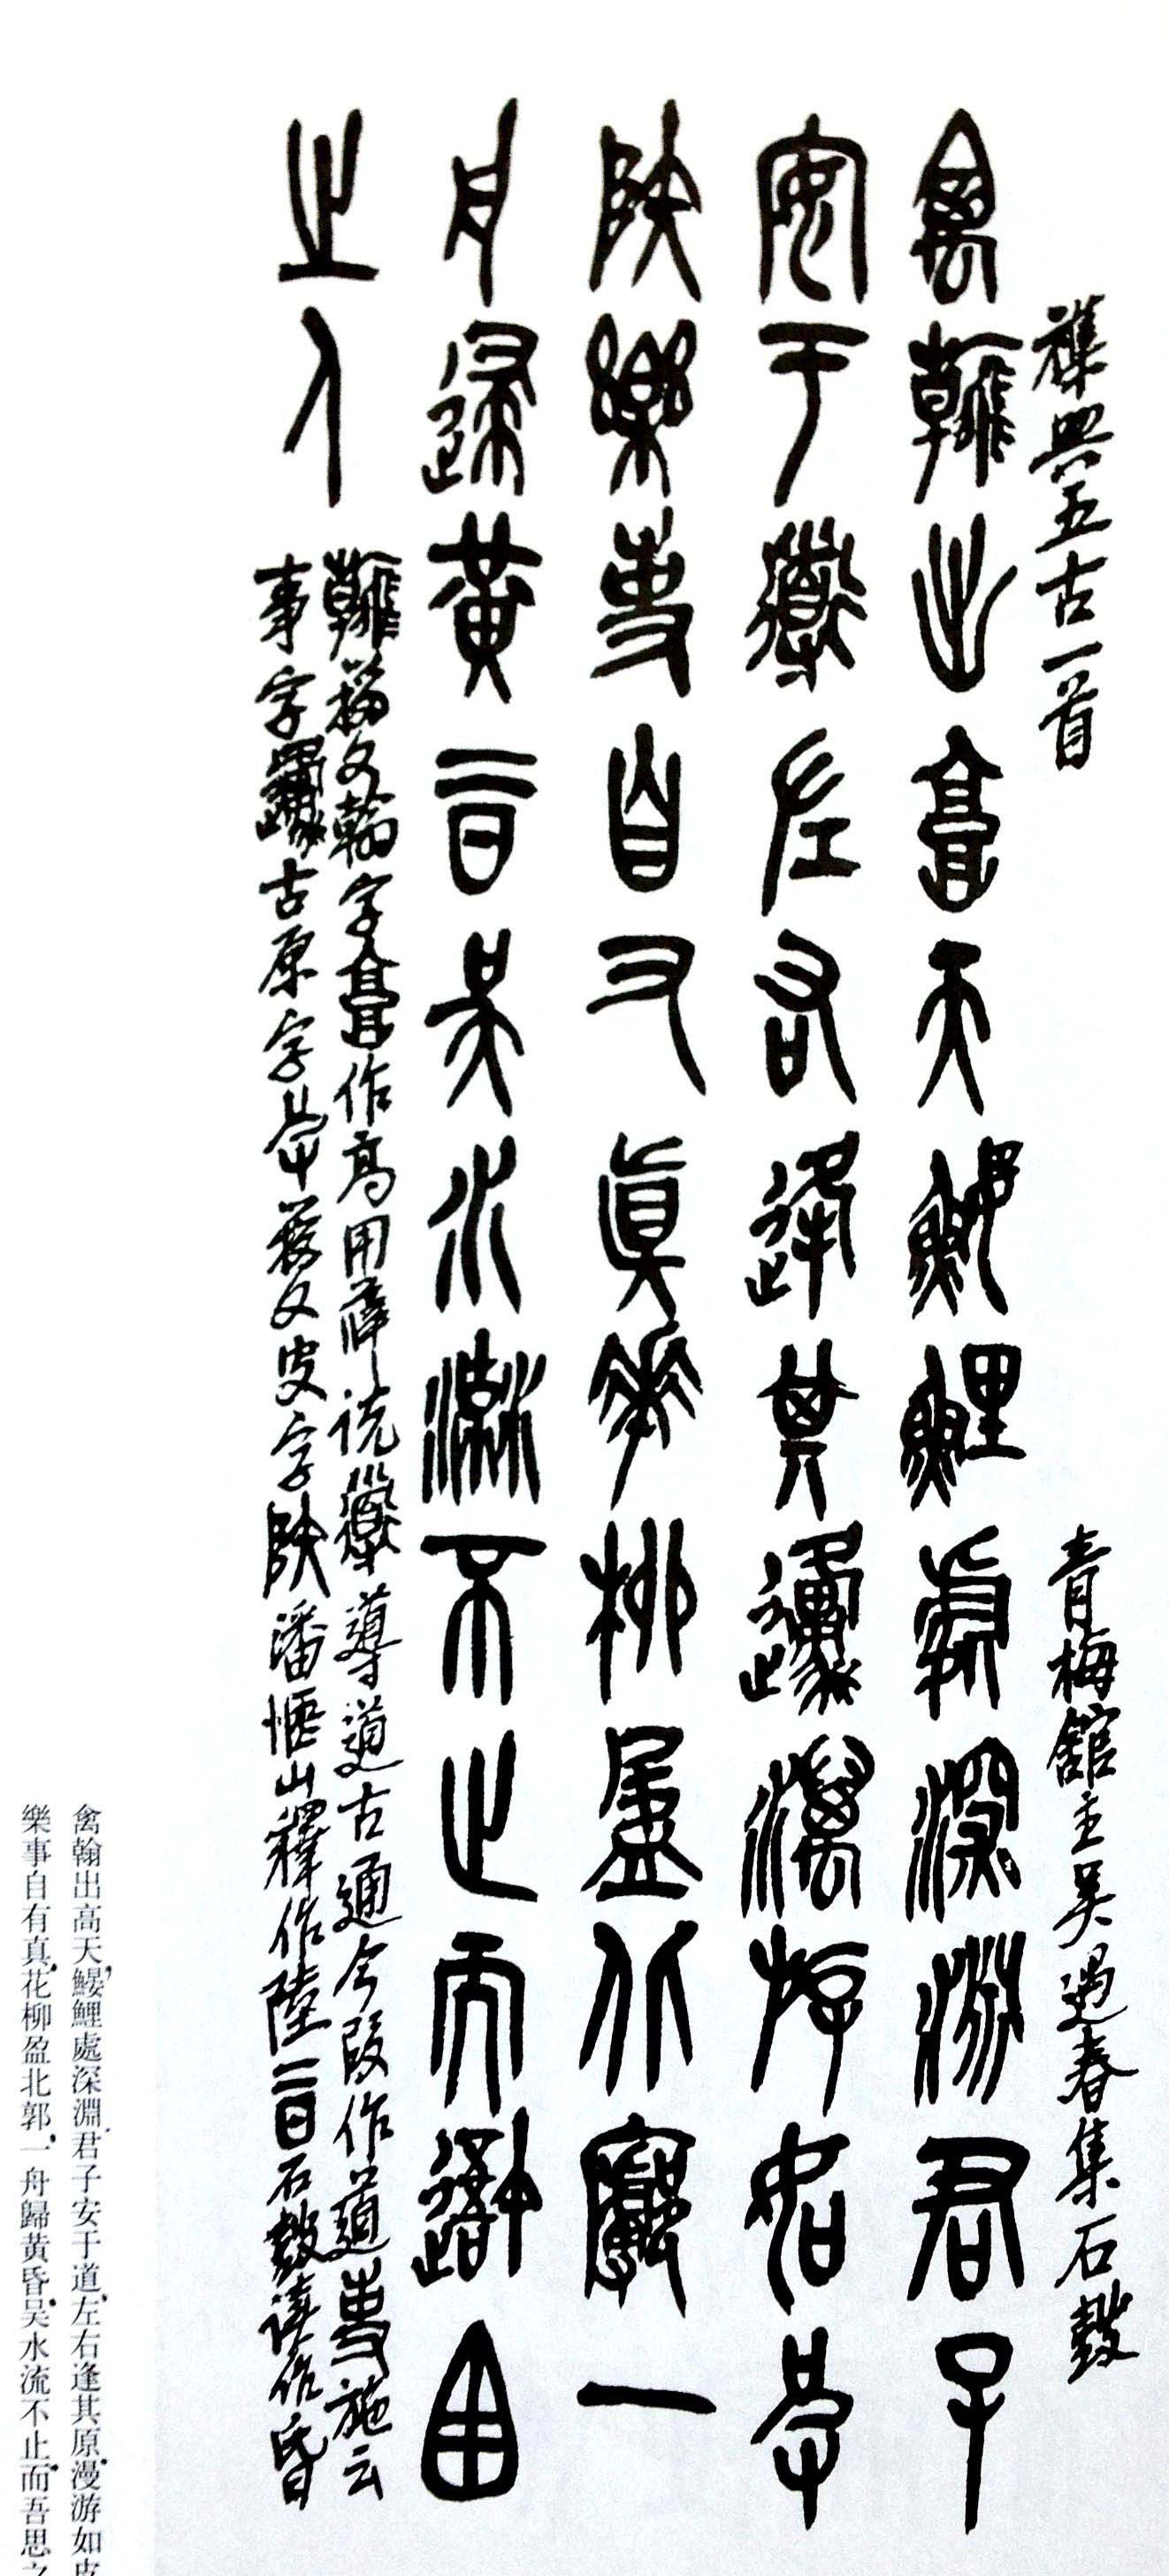 襍興五古一首
青梅館主吳遇春集石鼓
禽翰出高天鰋鯉處深淵君子
安于導左右逢其原漫斿如皮
陸樂事自又真華柳盈北郭一
舟歸黃昏吳水流不止而吾思
之人
翰籀文翰字高作高用薛說導導道古通今叚作道事施云
事字原古原字皮籀文皮字陸潘愜山釋作陸昏石鼓讀作昏
禽翰出高天，鰋鯉處深淵。君子安于道，左右逢其原。漫游如皮
樂事自有真，花柳盈北郭，一舟歸黄昏。吴水流不止，而吾思之